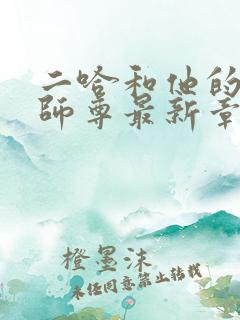 二哈和他的
師尊最新章
橙墨沫
未经同意禁止转载